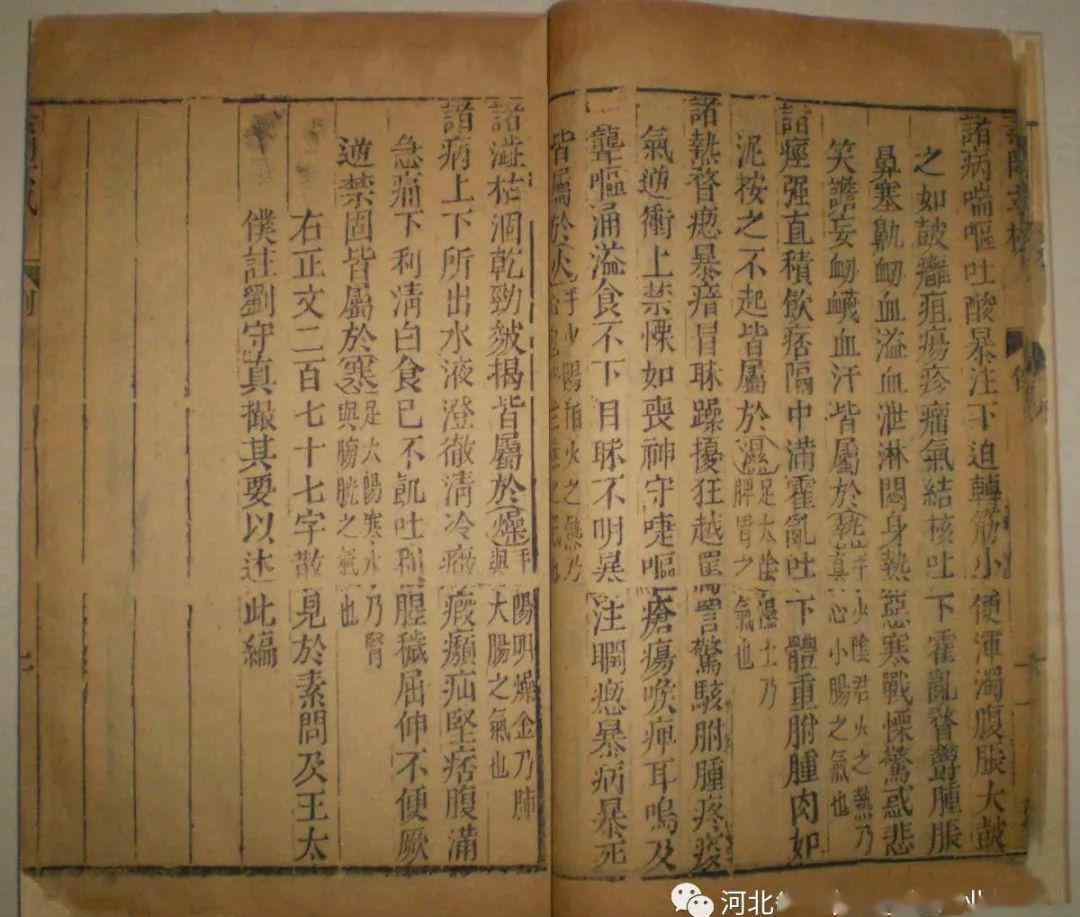 諸病喘嘔吐酸暴注下迫轉筋小便渾濁腹脹大鼓
之如鼓癰疽瘍疹瘤氣結核吐下霍亂瞀鬱腫脹
鼻塞鼽衂血溢血泄淋閟身熱惡寒戰慄驚惑悲
笑譫妄衂衊血汗皆屬於熱手少陰君火之熱乃真心小腸之氣也
諸痙强直積飲痞隔中滿霍亂吐下體重胕腫肉如
泥按之不起皆屬於濕足太陰濕土乃脾胃之氣也
諸熱瞀瘛暴瘖冒昧躁擾狂越罵詈驚駭胕腫疼痠
氣逆衝上禁慄如喪神守嚏嘔瘡瘍喉痺耳鳴及
聾嘔涌溢食不下目昧不明暴注瞤瘛暴病暴死
皆屬於火手少陽相火之熱乃
諸澁枯涸乾勁皴揭皆屬於燥手陽明燥金乃肺與大腸之氣也
諸病上下所出水液澄徹清冷癥瘕㿗疝堅痞腹滿
急痛下利清白食已不飢吐利腥穢屈伸不便厥
逆禁固皆屬於寒足太陽寒水乃腎與膀胱之氣也
右正文二百七十七字散見於素問及王太
僕註劉守真撮其要以述此編
河北